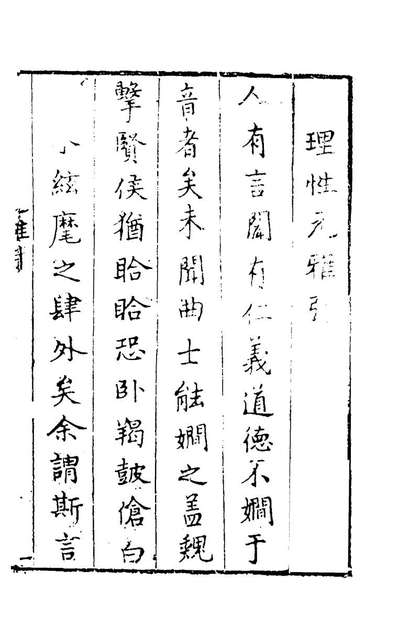 理性元雅引
人有言聞有仁義道德不嫺于
音者矣未聞曲士能嫺之盖魏
擊賢侯猶眙眙恐卧羯皷傖白
小絃麾之肆外矣余謂斯言